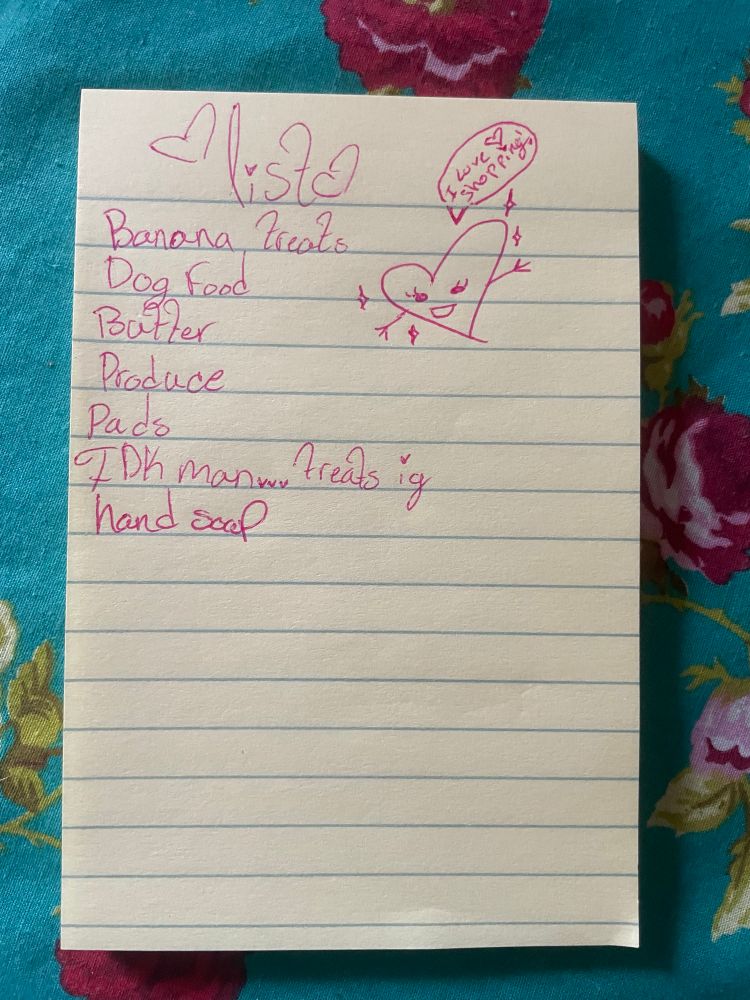 lista
I love
shopping!
Banana treats
Dog Food
Butter
Produce
Pads
IDK man... treats ig
hand soap